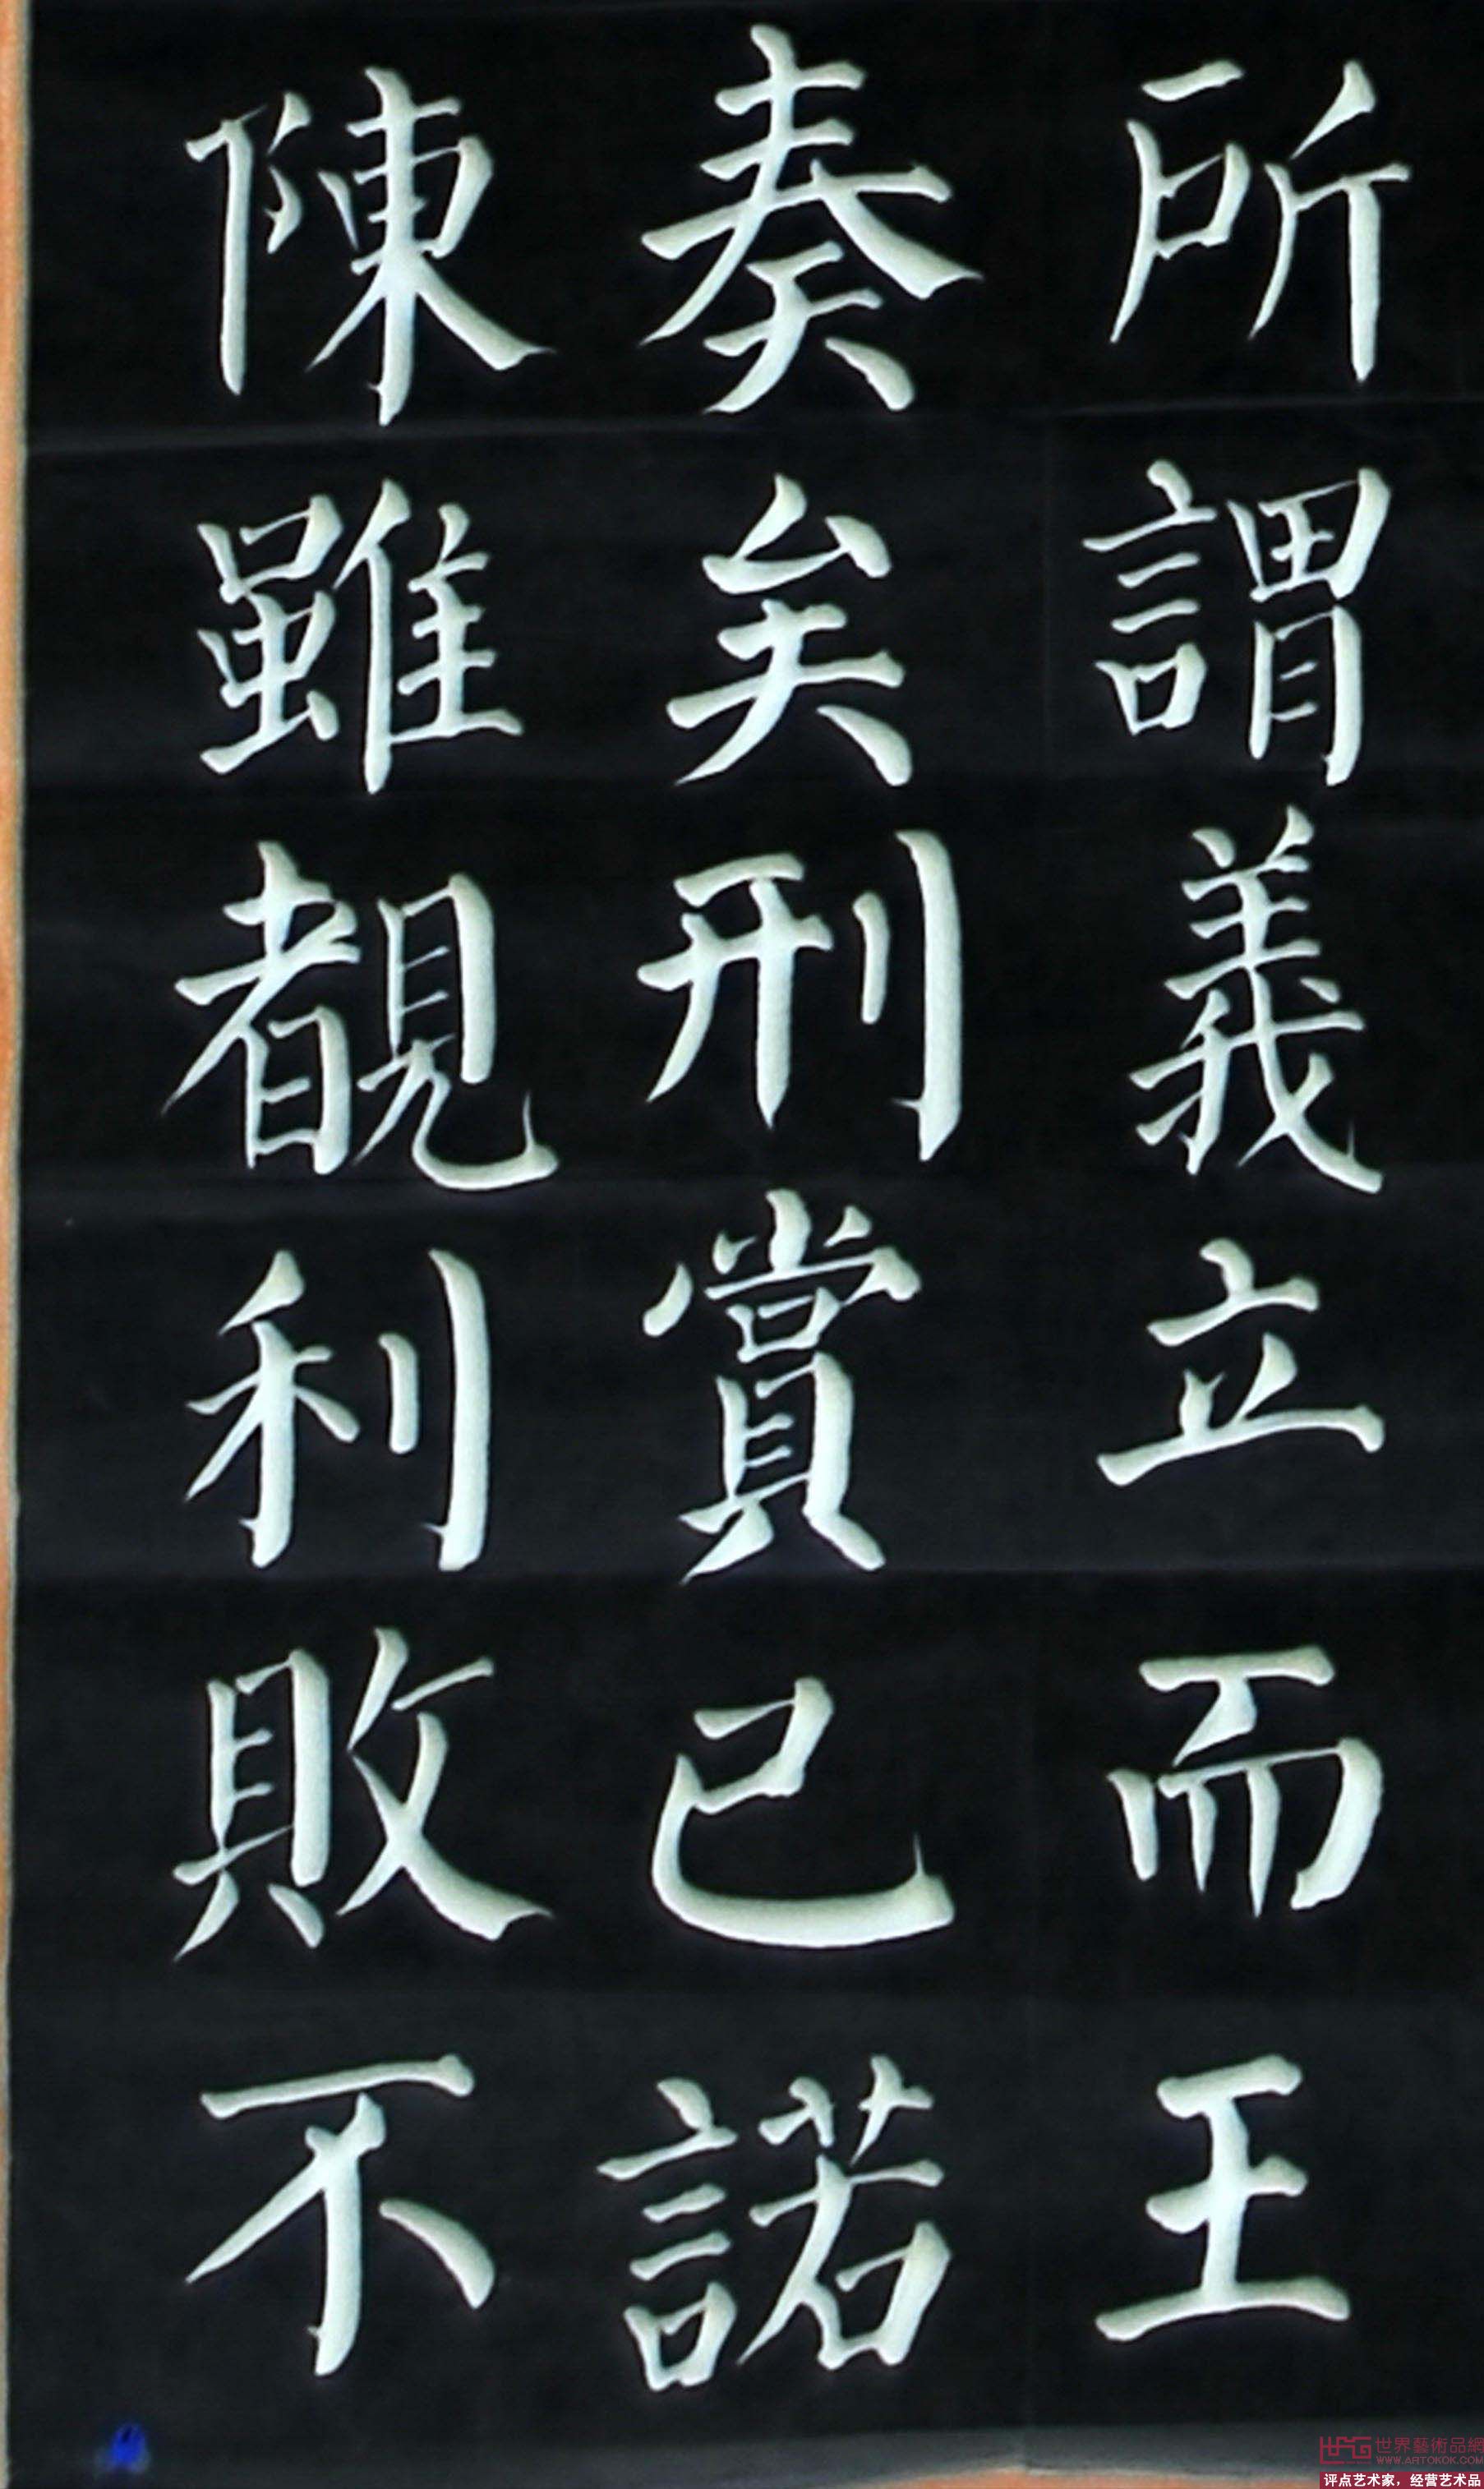 所謂義立而王
奏矣刑賞已諾
陳雖覩利敗不
世界藝術品網
WWW.ARTOKOK.COM
评点艺术家，经营艺术品